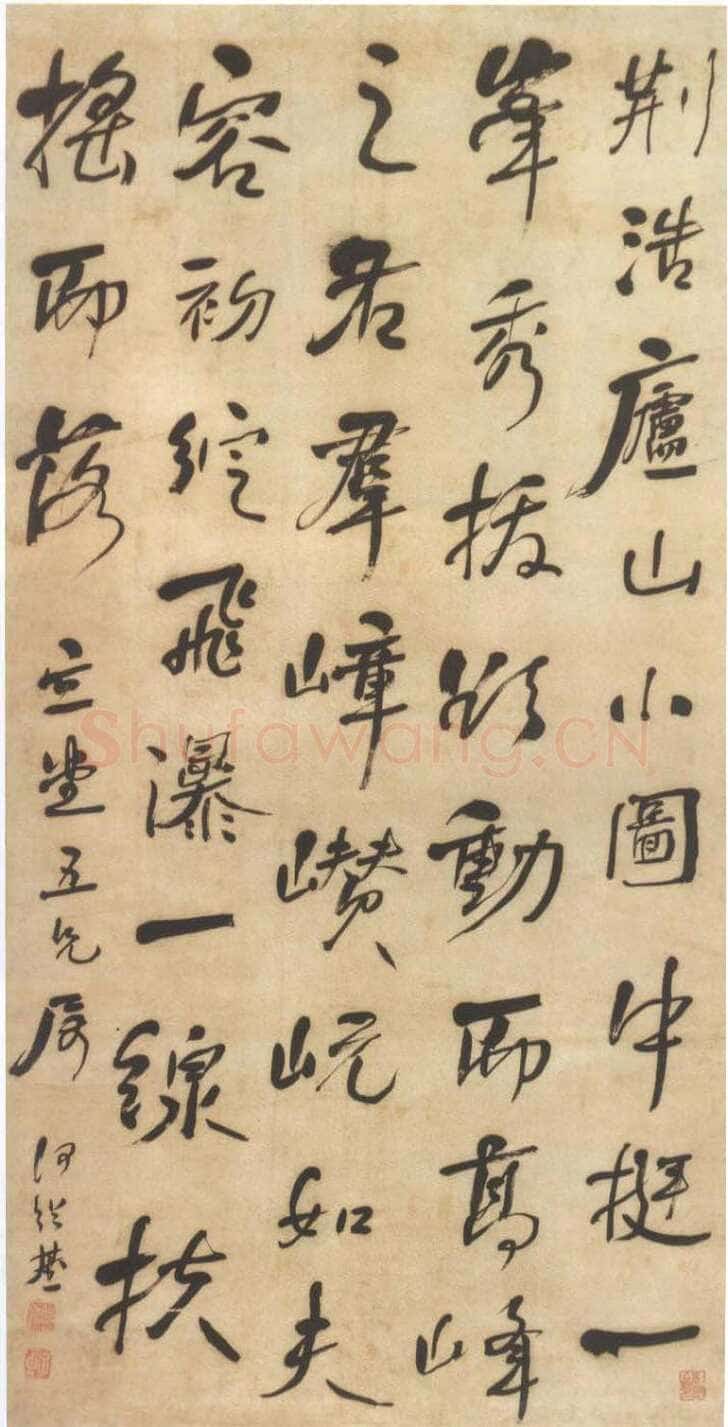 荆浩廬山小圖中挺一
峯秀拔欲動而高峰
之右羣嶂巑岏如夫
容初綻飛瀑一線扶
搖而落 堂五兄属 何紹基
Shufawang.CN